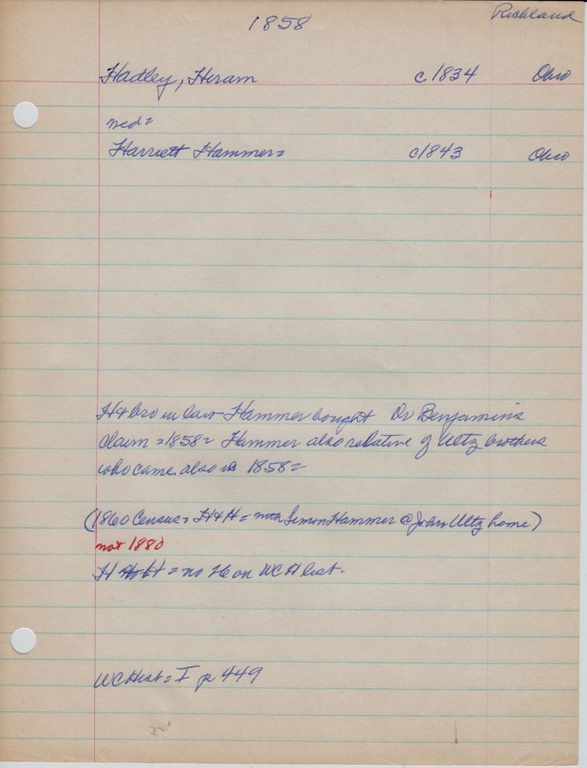 1858
Richland
Hadley, Hiram c1834 Ohio
md=
Harriett Hammer= c1843 Ohio
H & bro in law Hammer bought Dr Benjamin's
claim =1858= Hammer also relative of Ultz brothers
who came also in 1858=
(1860 Census = H&H = with Simon Hammer @ John Ultz home)
not 1880
H = no H on WCH list.
WCHist = I p 449